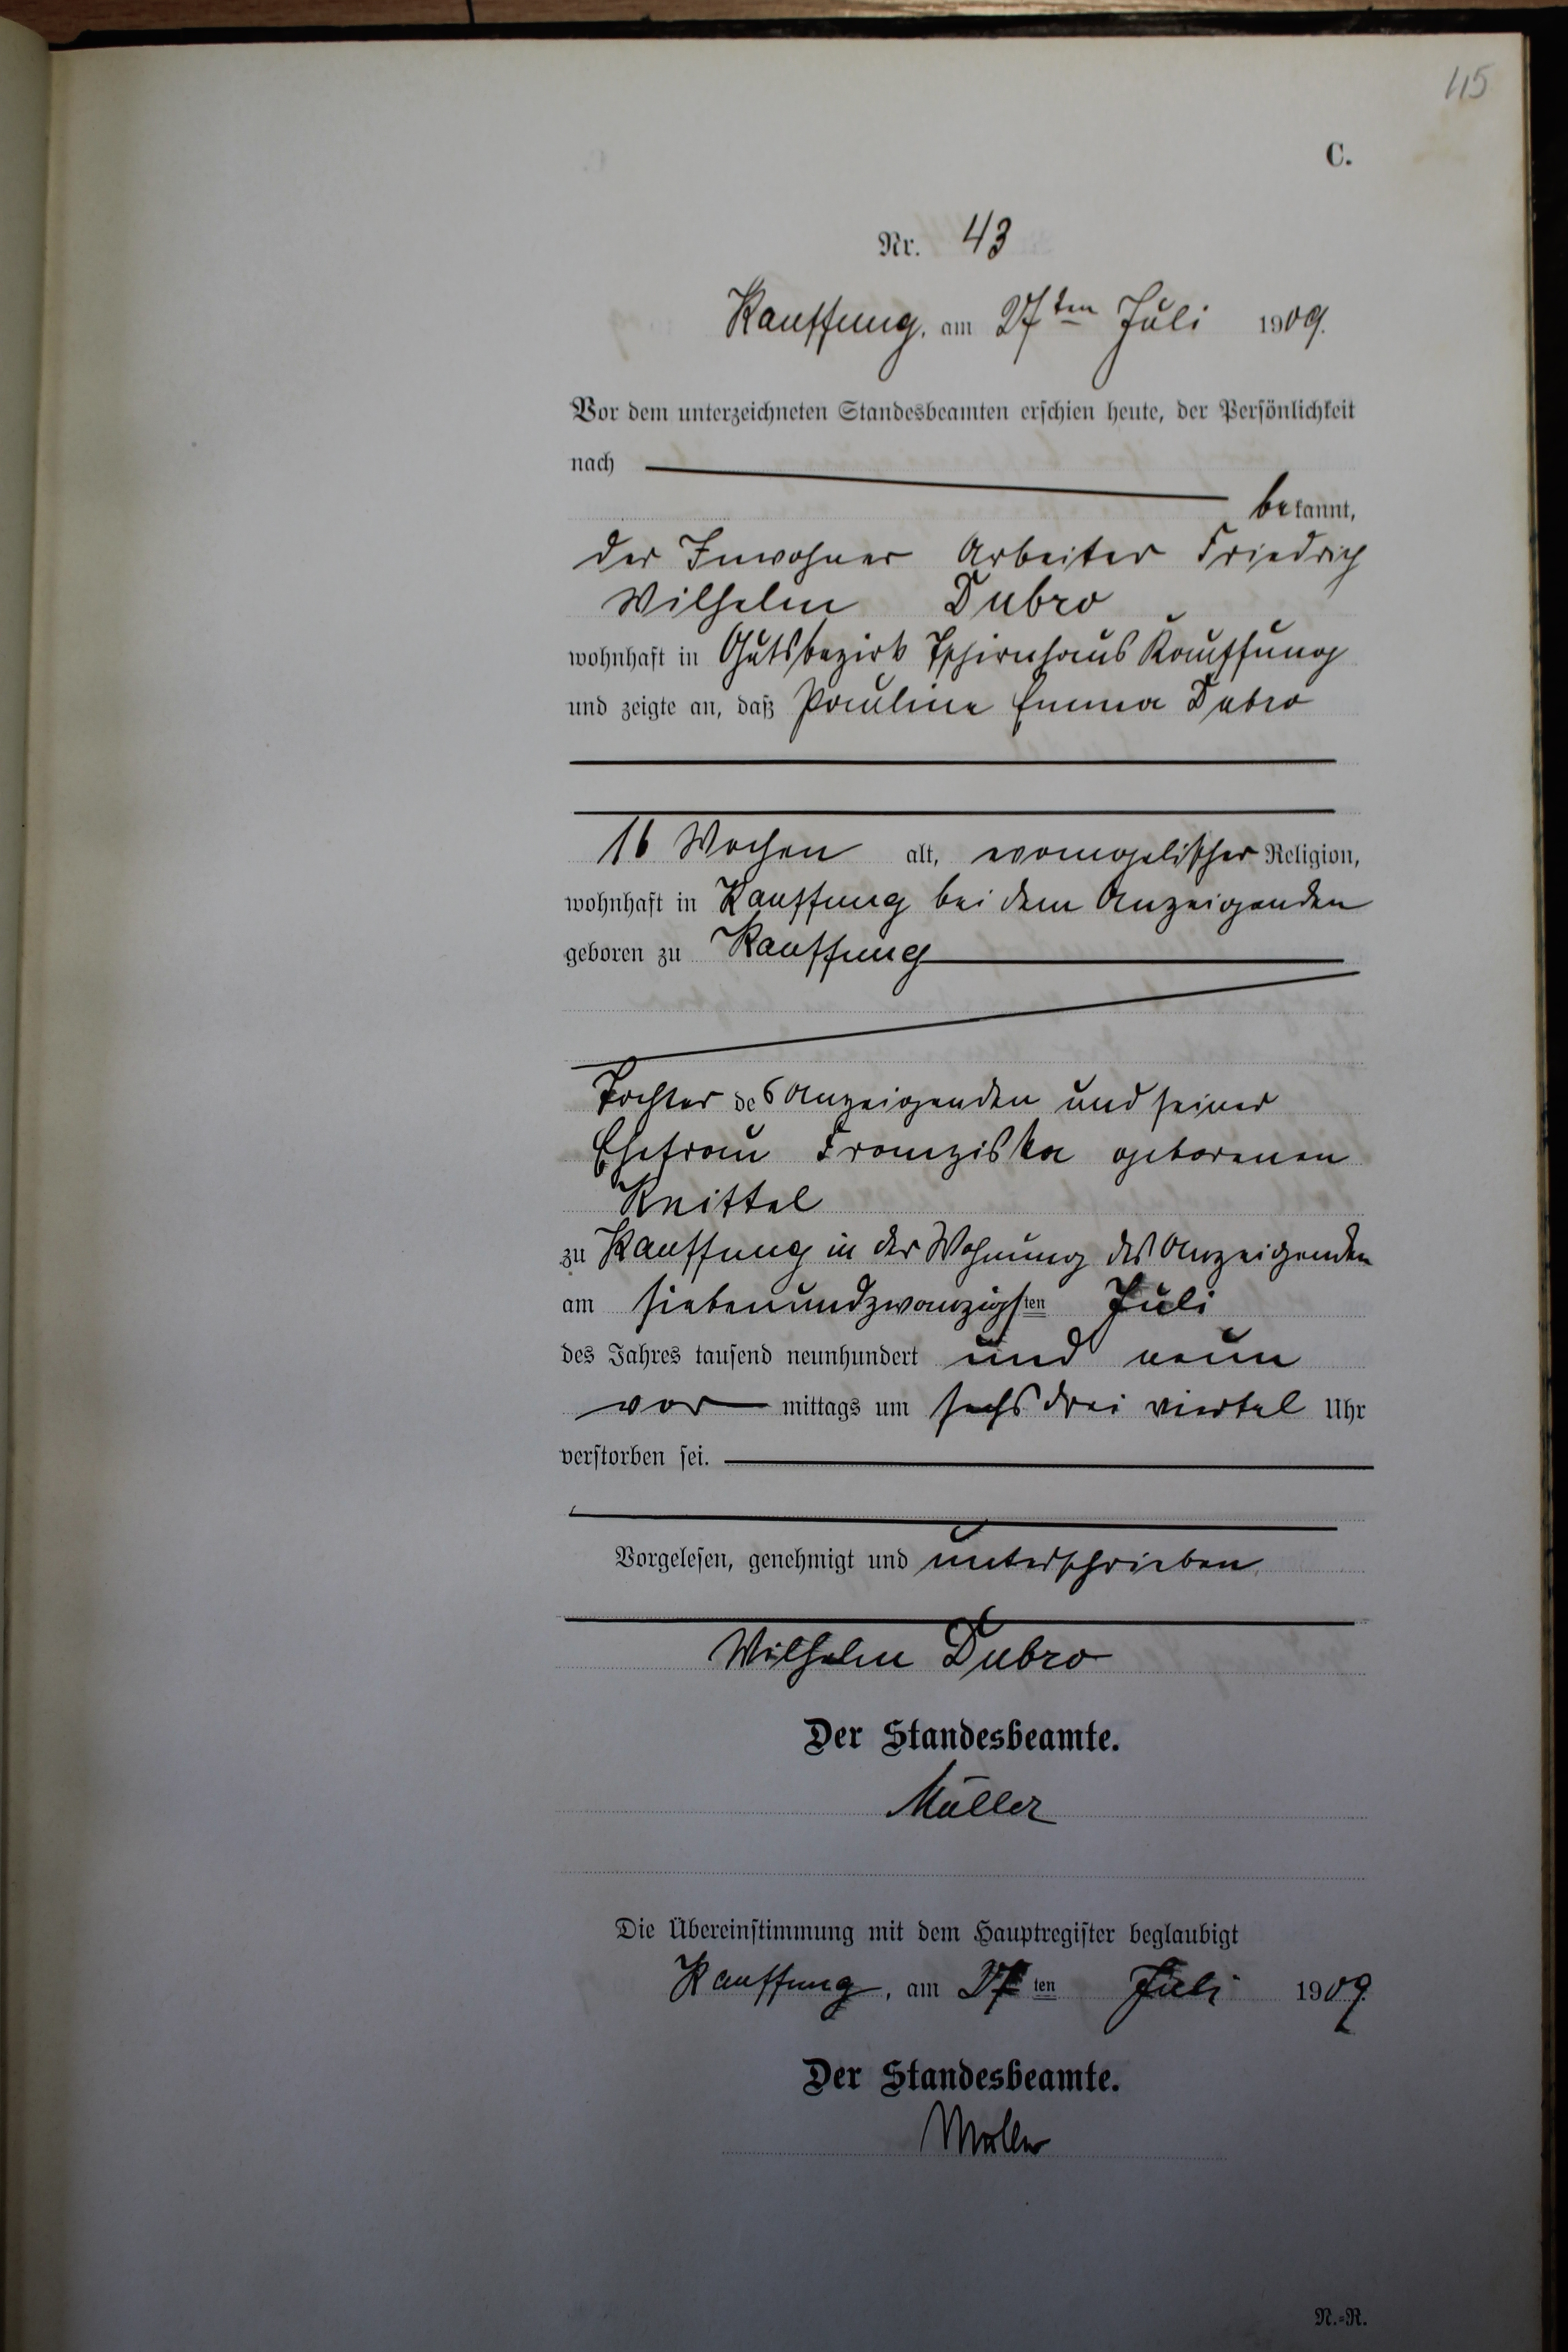 115
C.
Nr. 43
Kauffung, am 27ten Juli 1909.
Vor dem unterzeichneten Standesbeamten erschien heute, der Persönlichkeit
nach
bekannt,
der Inwohner Arbeiter Friedrich
Wilhelm Dubro
wohnhaft in Gutsbezirk Tschirnhaus Kauffung
und zeigte an, daß Pauline Emma Dubro
16 Wochen alt, evangelischer Religion,
wohnhaft in Kauffung bei dem Anzeigenden
geboren zu Kauffung
Tochter des Anzeigenden und seiner
Ehefrau Franziska geborenen
Knittel
zu Kauffung in der Wohnung des Anzeigenden
am siebenundzwanzigsten Juli
des Jahres tausend neunhundert und neun
vor mittags um sechs drei viertel Uhr
verstorben sei.
Vorgelesen, genehmigt und unterschrieben
Wilhelm Dubro
Der Standesbeamte.
Müller
Die Übereinstimmung mit dem Hauptregister beglaubigt
Kauffung, am 27ten Juli 1909
Der Standesbeamte.
Müller
N.-R.